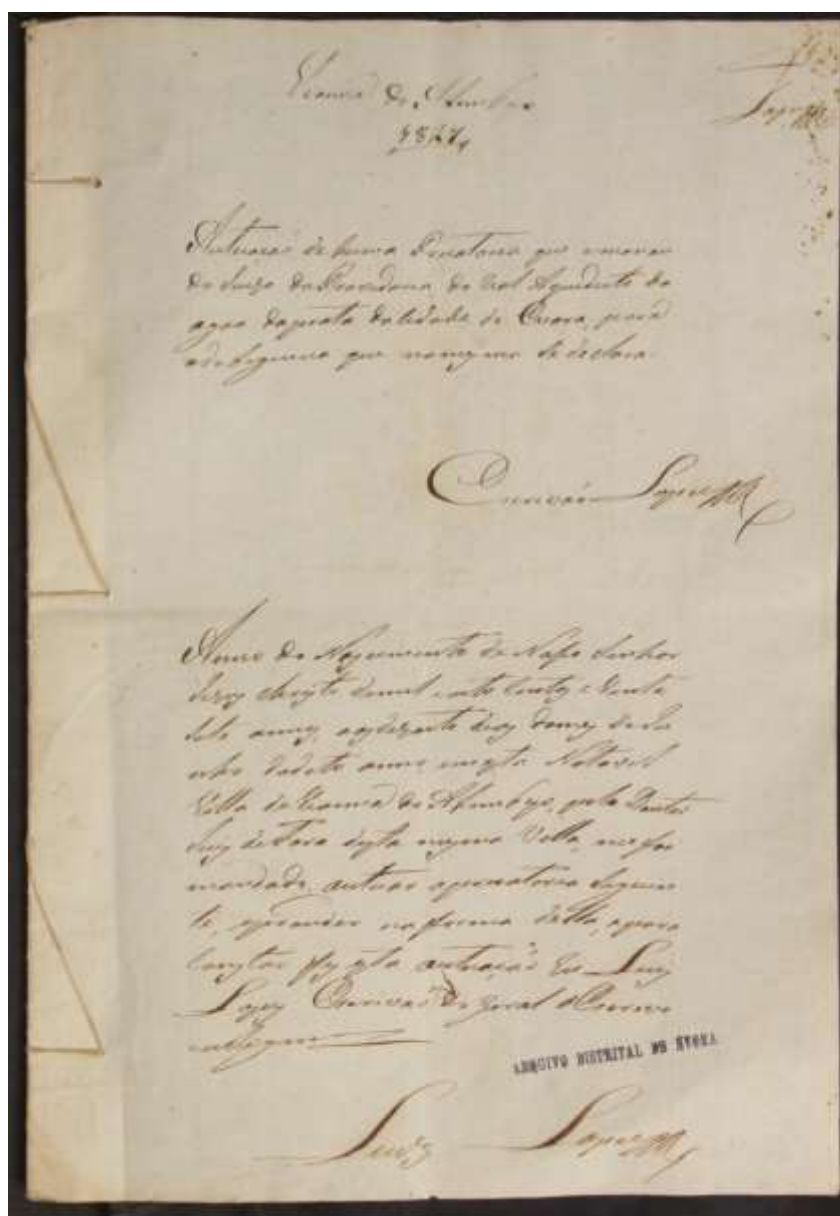 Vianna do Alemtejo
1827
Lopes
Autuação de huma Precatoria que
do Juizo da Provedoria do Real Aqueducto da
agoa da prata da Cidade de Evora, para
que se declara.
Escrivão Lopes
Anno do Nascimento de Nosso Senhor
Jesus Christo de mil oito centos e vinte
sete annos, aos dezaseis
do dito anno, nesta Notavel
Villa de Vianna do Alemtejo, pelo Doutor
Juiz de Fora desta mesma Villa, me foi
mandado autuar a precatoria seguin
te, na forma della, e para
constar fiz esta autuação Eu Luiz
Lopes Escrivão do geral o Escrevi
ARQUIVO DISTRITAL DE EVORA
Luiz Lopes